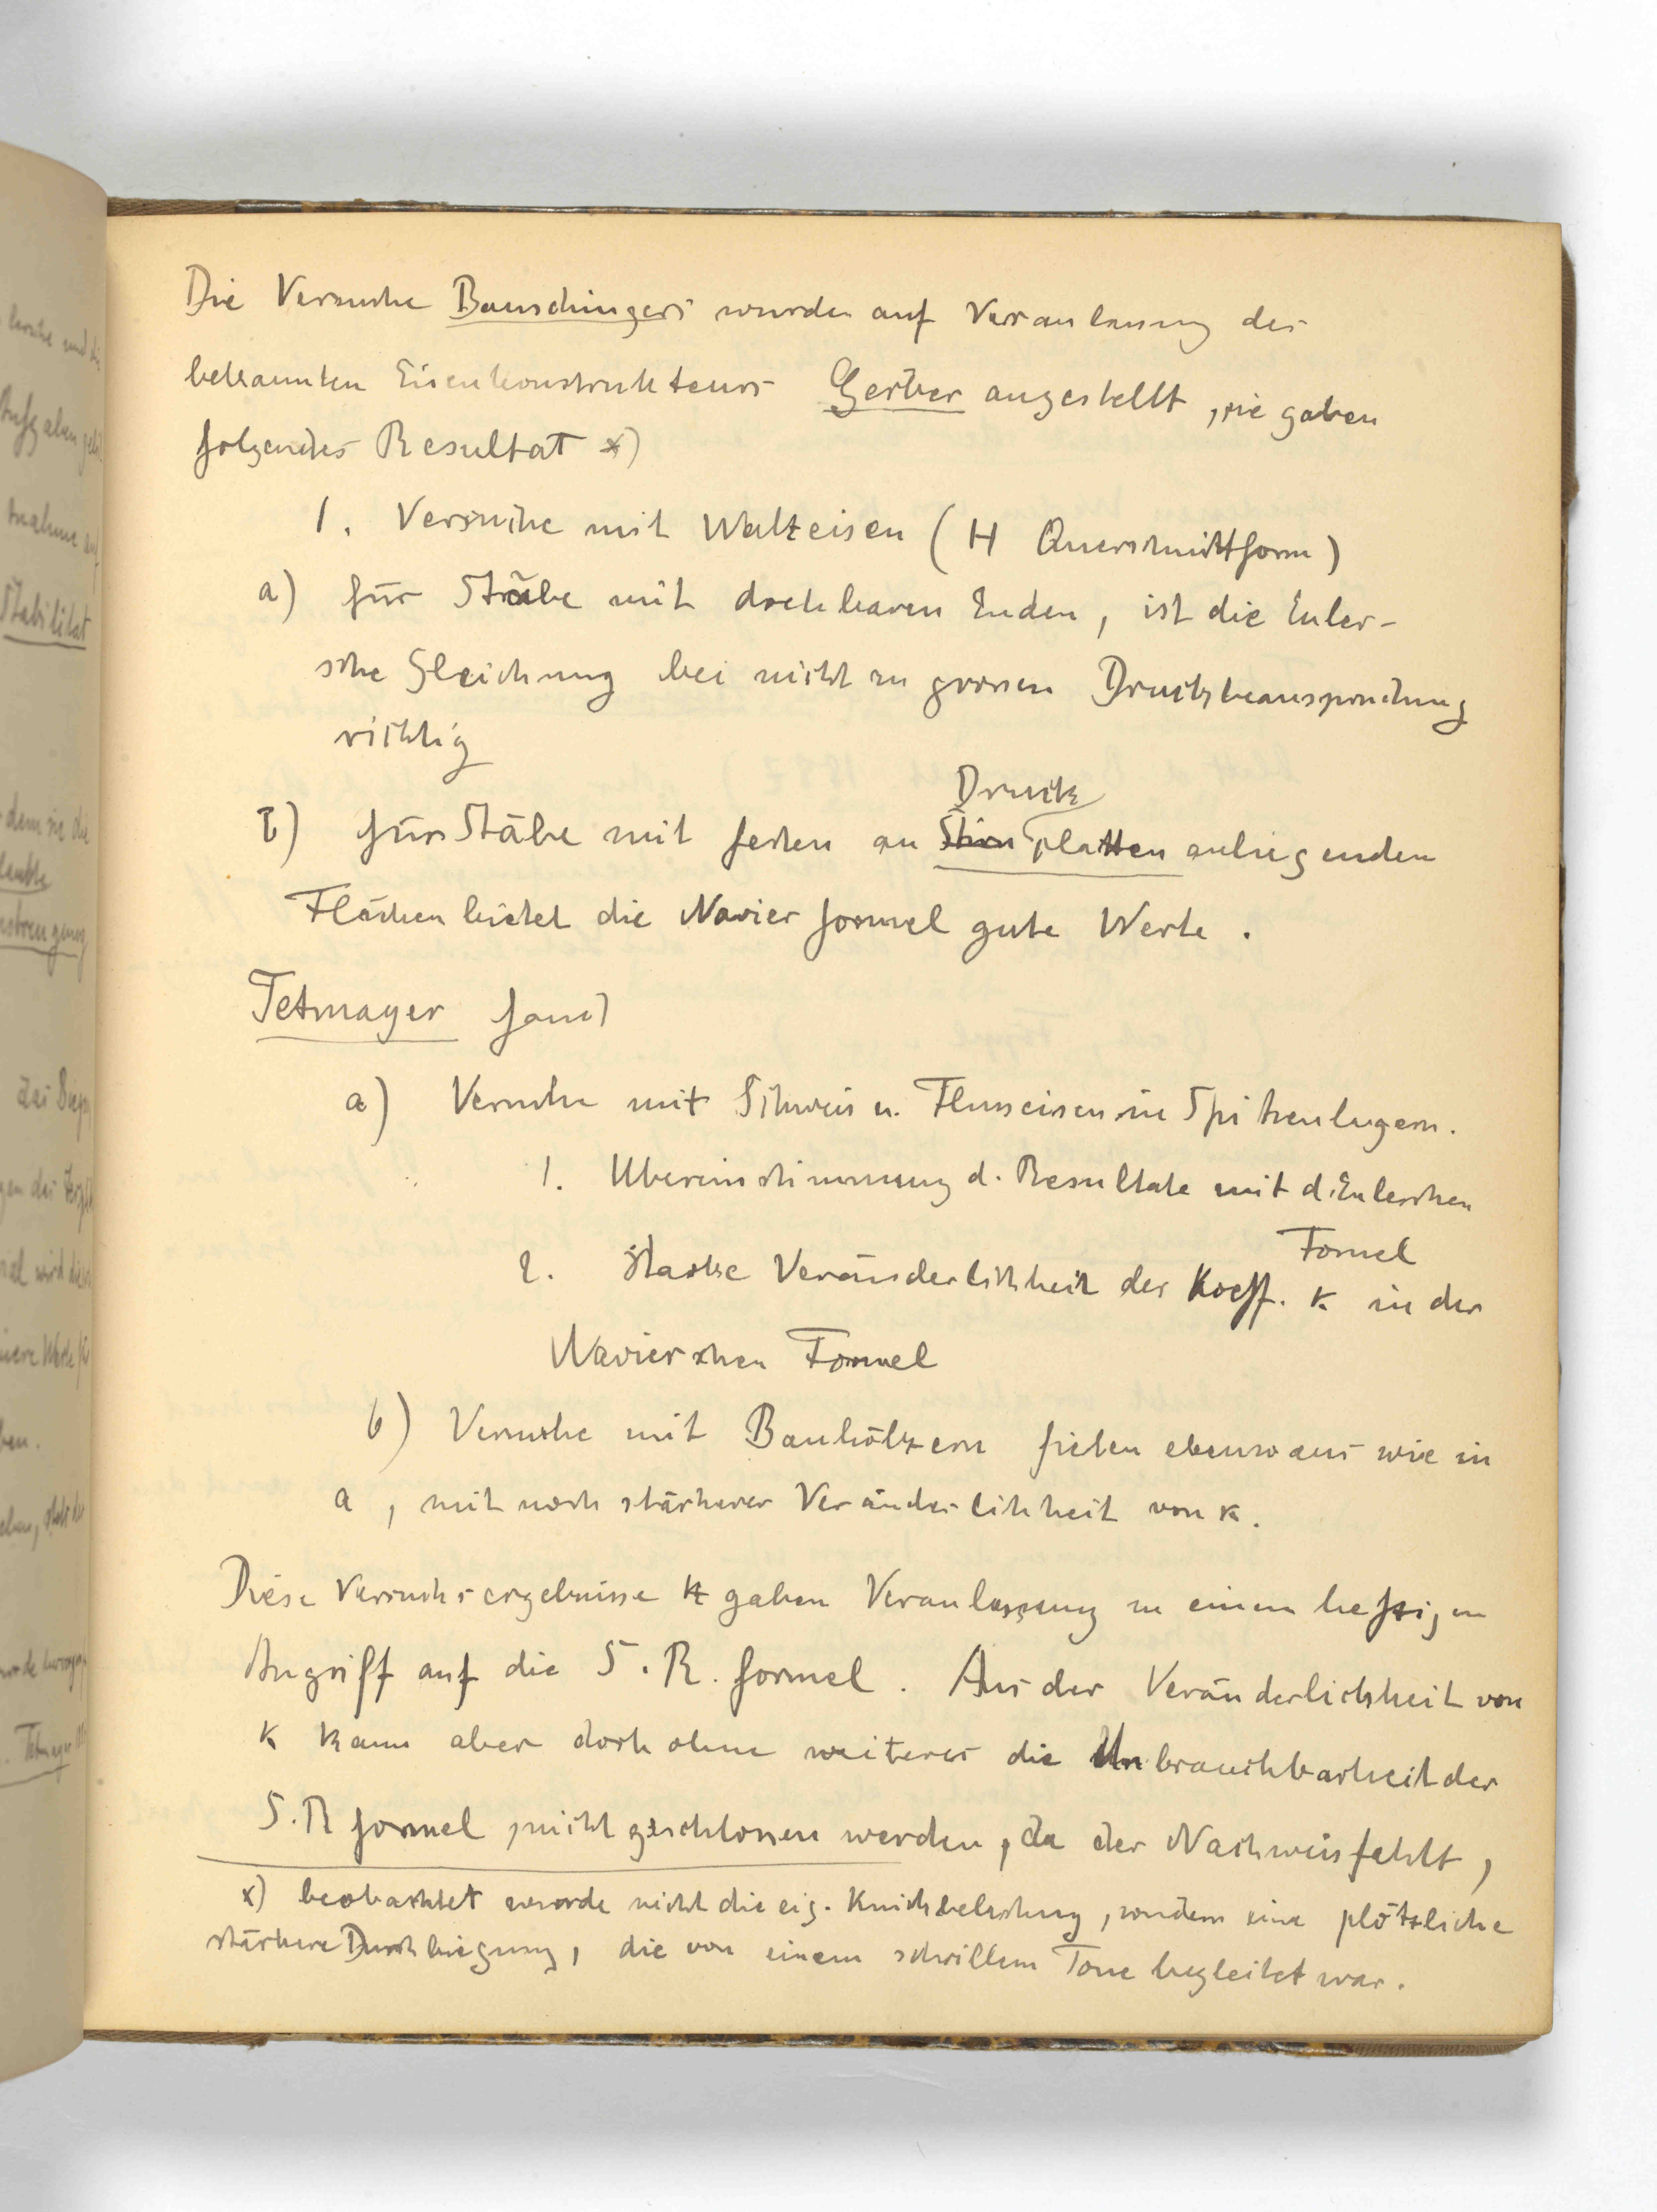 Die Versuche Bauschingers wurden auf Veranlassung des
bekannten Eisenkonstrukteurs Gerber angestellt, sie gaben
folgendes Resultat x)
1. Versuche mit Walzeisen (H Querschnittform)
a) für Stäbe mit drehbaren Enden, ist die Euler-
sche Gleichung bei nicht zu grossen Druckbeanspruchung
richtig
Druck
b) für Stäbe mit festen an Stirn platten anliegenden
Flächen bietet die Navier formel gute Werte.
Tetmayer fand
a) Versuche mit Schweis u. Flusseisen in Spitzenlagern.
1. Übereinstimmung d. Resultate mit d. Eulerschen
Formel
2. starke Veränderlichkeit des Koeff. κ in der
Navierschen Formel
b) Versuche mit Bauhölzern fielen ebenso aus wie in
a, mit noch stärkerer Veränderlichkeit von κ.
Diese Versuchsergebnisse gaben Veranlassung zu einem heftigen
Angriff auf die S.R. formel. Aus der Veränderlichkeit von
κ kann aber doch ohne weiteres die Unbrauchbarkeit der
S.R formel nicht geschlossen werden, da der Nachweis fehlt,
x) beobachtet wurde nicht die eig. Knickbelastung, sondern eine plötzliche
stärkere Durchbiegung, die von einem schrillem Tone begleitet war.
Stabilität